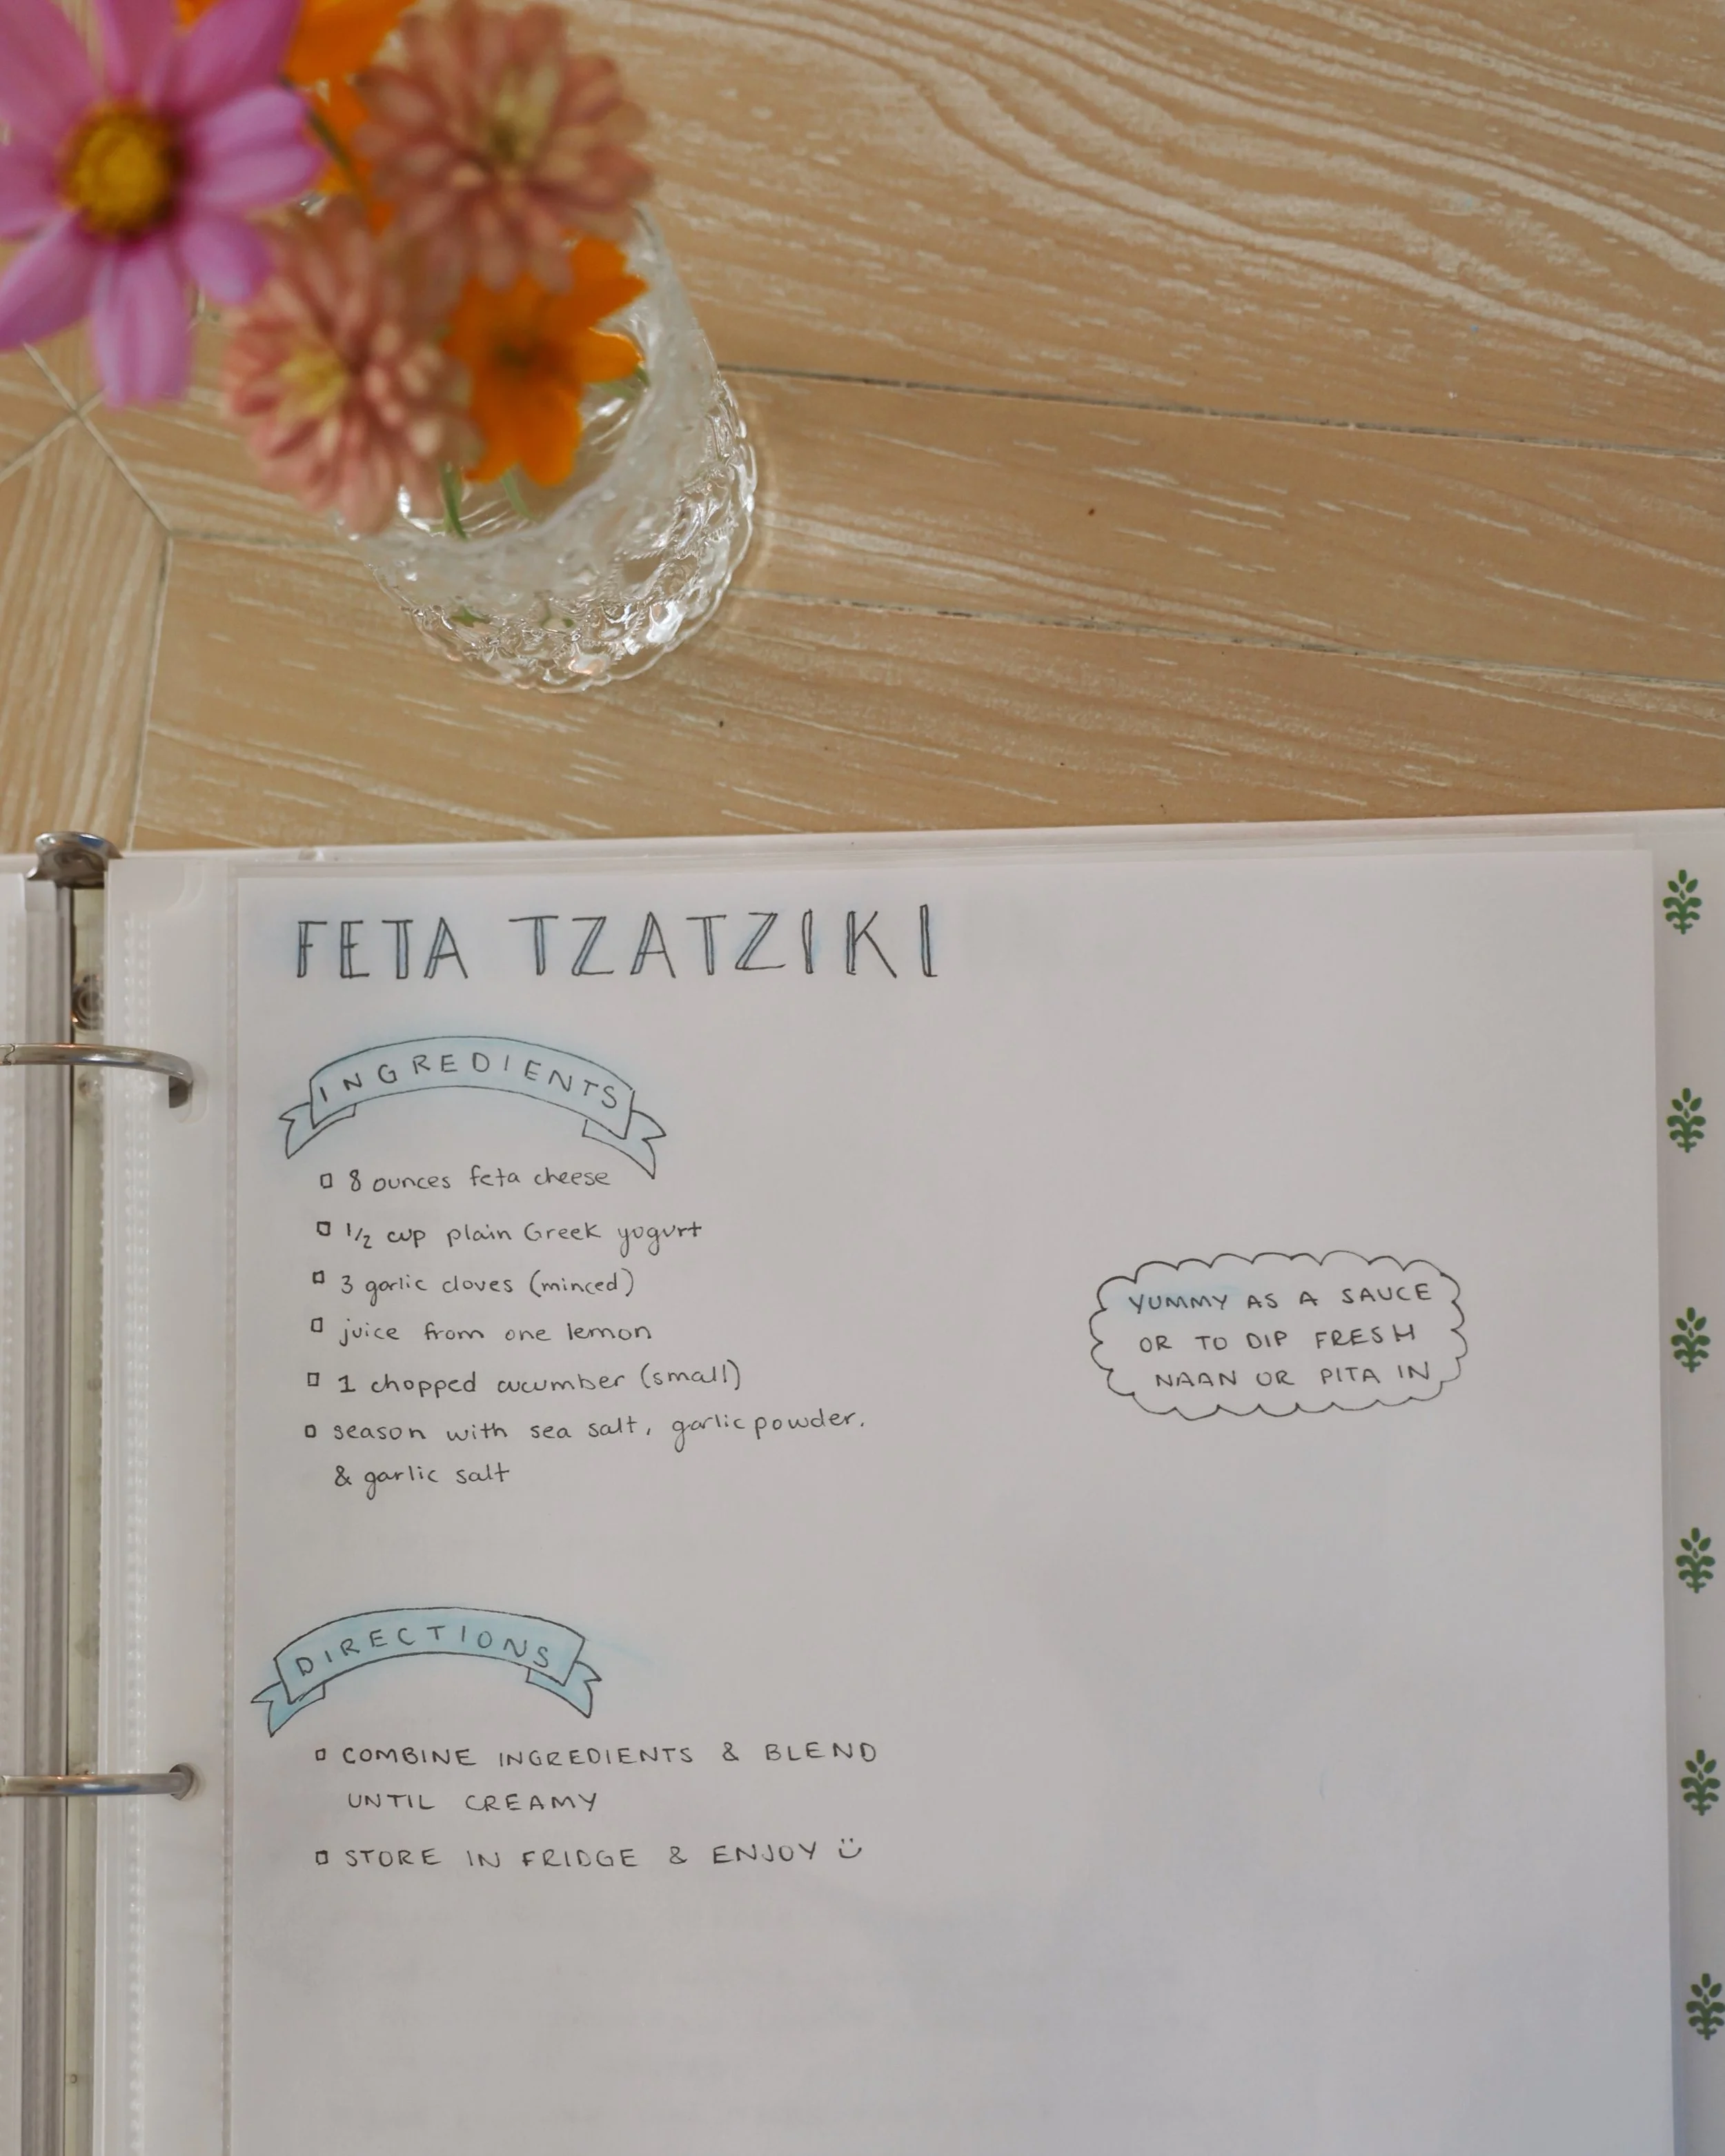 FETA TZATZIKI
INGREDIENTS
8 ounces feta cheese
1/2 cup plain Greek yogurt
3 garlic cloves (minced)
juice from one lemon
1 chopped cucumber (small)
season with sea salt, garlic powder.
& garlic salt
YUMMY AS A SAUCE
OR TO DIP FRESH
NAAN OR PITA IN
DIRECTIONS
COMBINE INGREDIENTS & BLEND
UNTIL CREAMY
STORE IN FRIDGE & ENJOY